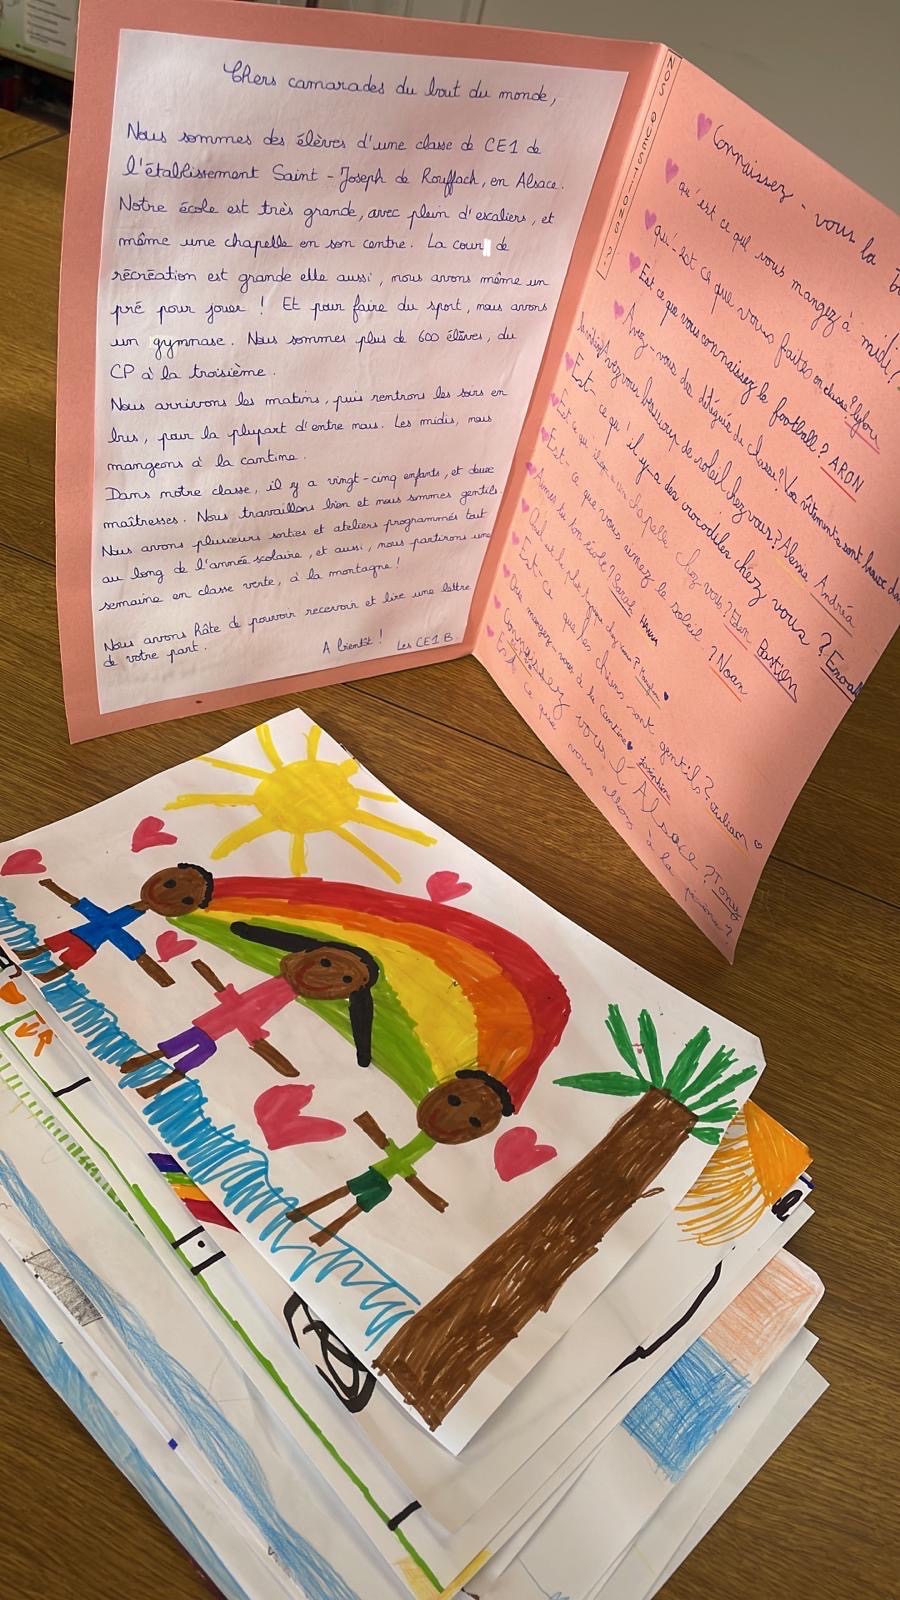 Chers camarades du bout du monde,
Nous sommes des élèves d'une classe de CE1 de
l'établissement Saint-Joseph de Rouffach, en Alsace.
Notre école est très grande, avec plein d'escaliers, et
même une chapelle en son centre. La cour de
récréation est grande elle aussi, nous avons même un
pré pour jouer ! Et pour faire du sport, nous avons
un gymnase. Nous sommes plus de 600 élèves, du
CP à la troisième.
Nous arrivons les matins, puis rentrons les soirs en
bus, pour la plupart d'entre nous. Les midis, nous
mangeons à la cantine.
Dans notre classe, il y a vingt-cinq enfants, et deux
maîtresses. Nous travaillons bien et nous sommes gentils.
Nous avons plusieurs sorties et ateliers programmés tout
au long de l'année scolaire, et aussi, nous partirons une
semaine en classe verte, à la montagne !
Nous avons hâte de pouvoir recevoir et lire une lettre
de votre part.
A bientôt ! Les CE1 B.
NOS QUESTIONS
Connaissez-vous la
qu'est ce que vous mangez à midi ?
qu'est ce que vous faites en classe ?
Est ce que vous connaissez le football ? ARON
Avez-vous des délégués de classe ? Les vêtements sont
Avez vous beaucoup de soleil chez vous ? Alessia Andréa
Est-ce qu'il y-a des crocodiles chez vous ?
Est ce qu'il chapelle chez-vous ? Eden Bastien
Est-ce que vous aimez le soleil ? Noan
Aimes tu ton école ? Sarah
Quel est le plus chez vous ?
Est-ce que les chiens sont gentils ?
Que mangez-vous à la cantine Joséphine
Connaissez vous l'Alsace ? Tony
Est ce que vous allez à la piscine ?